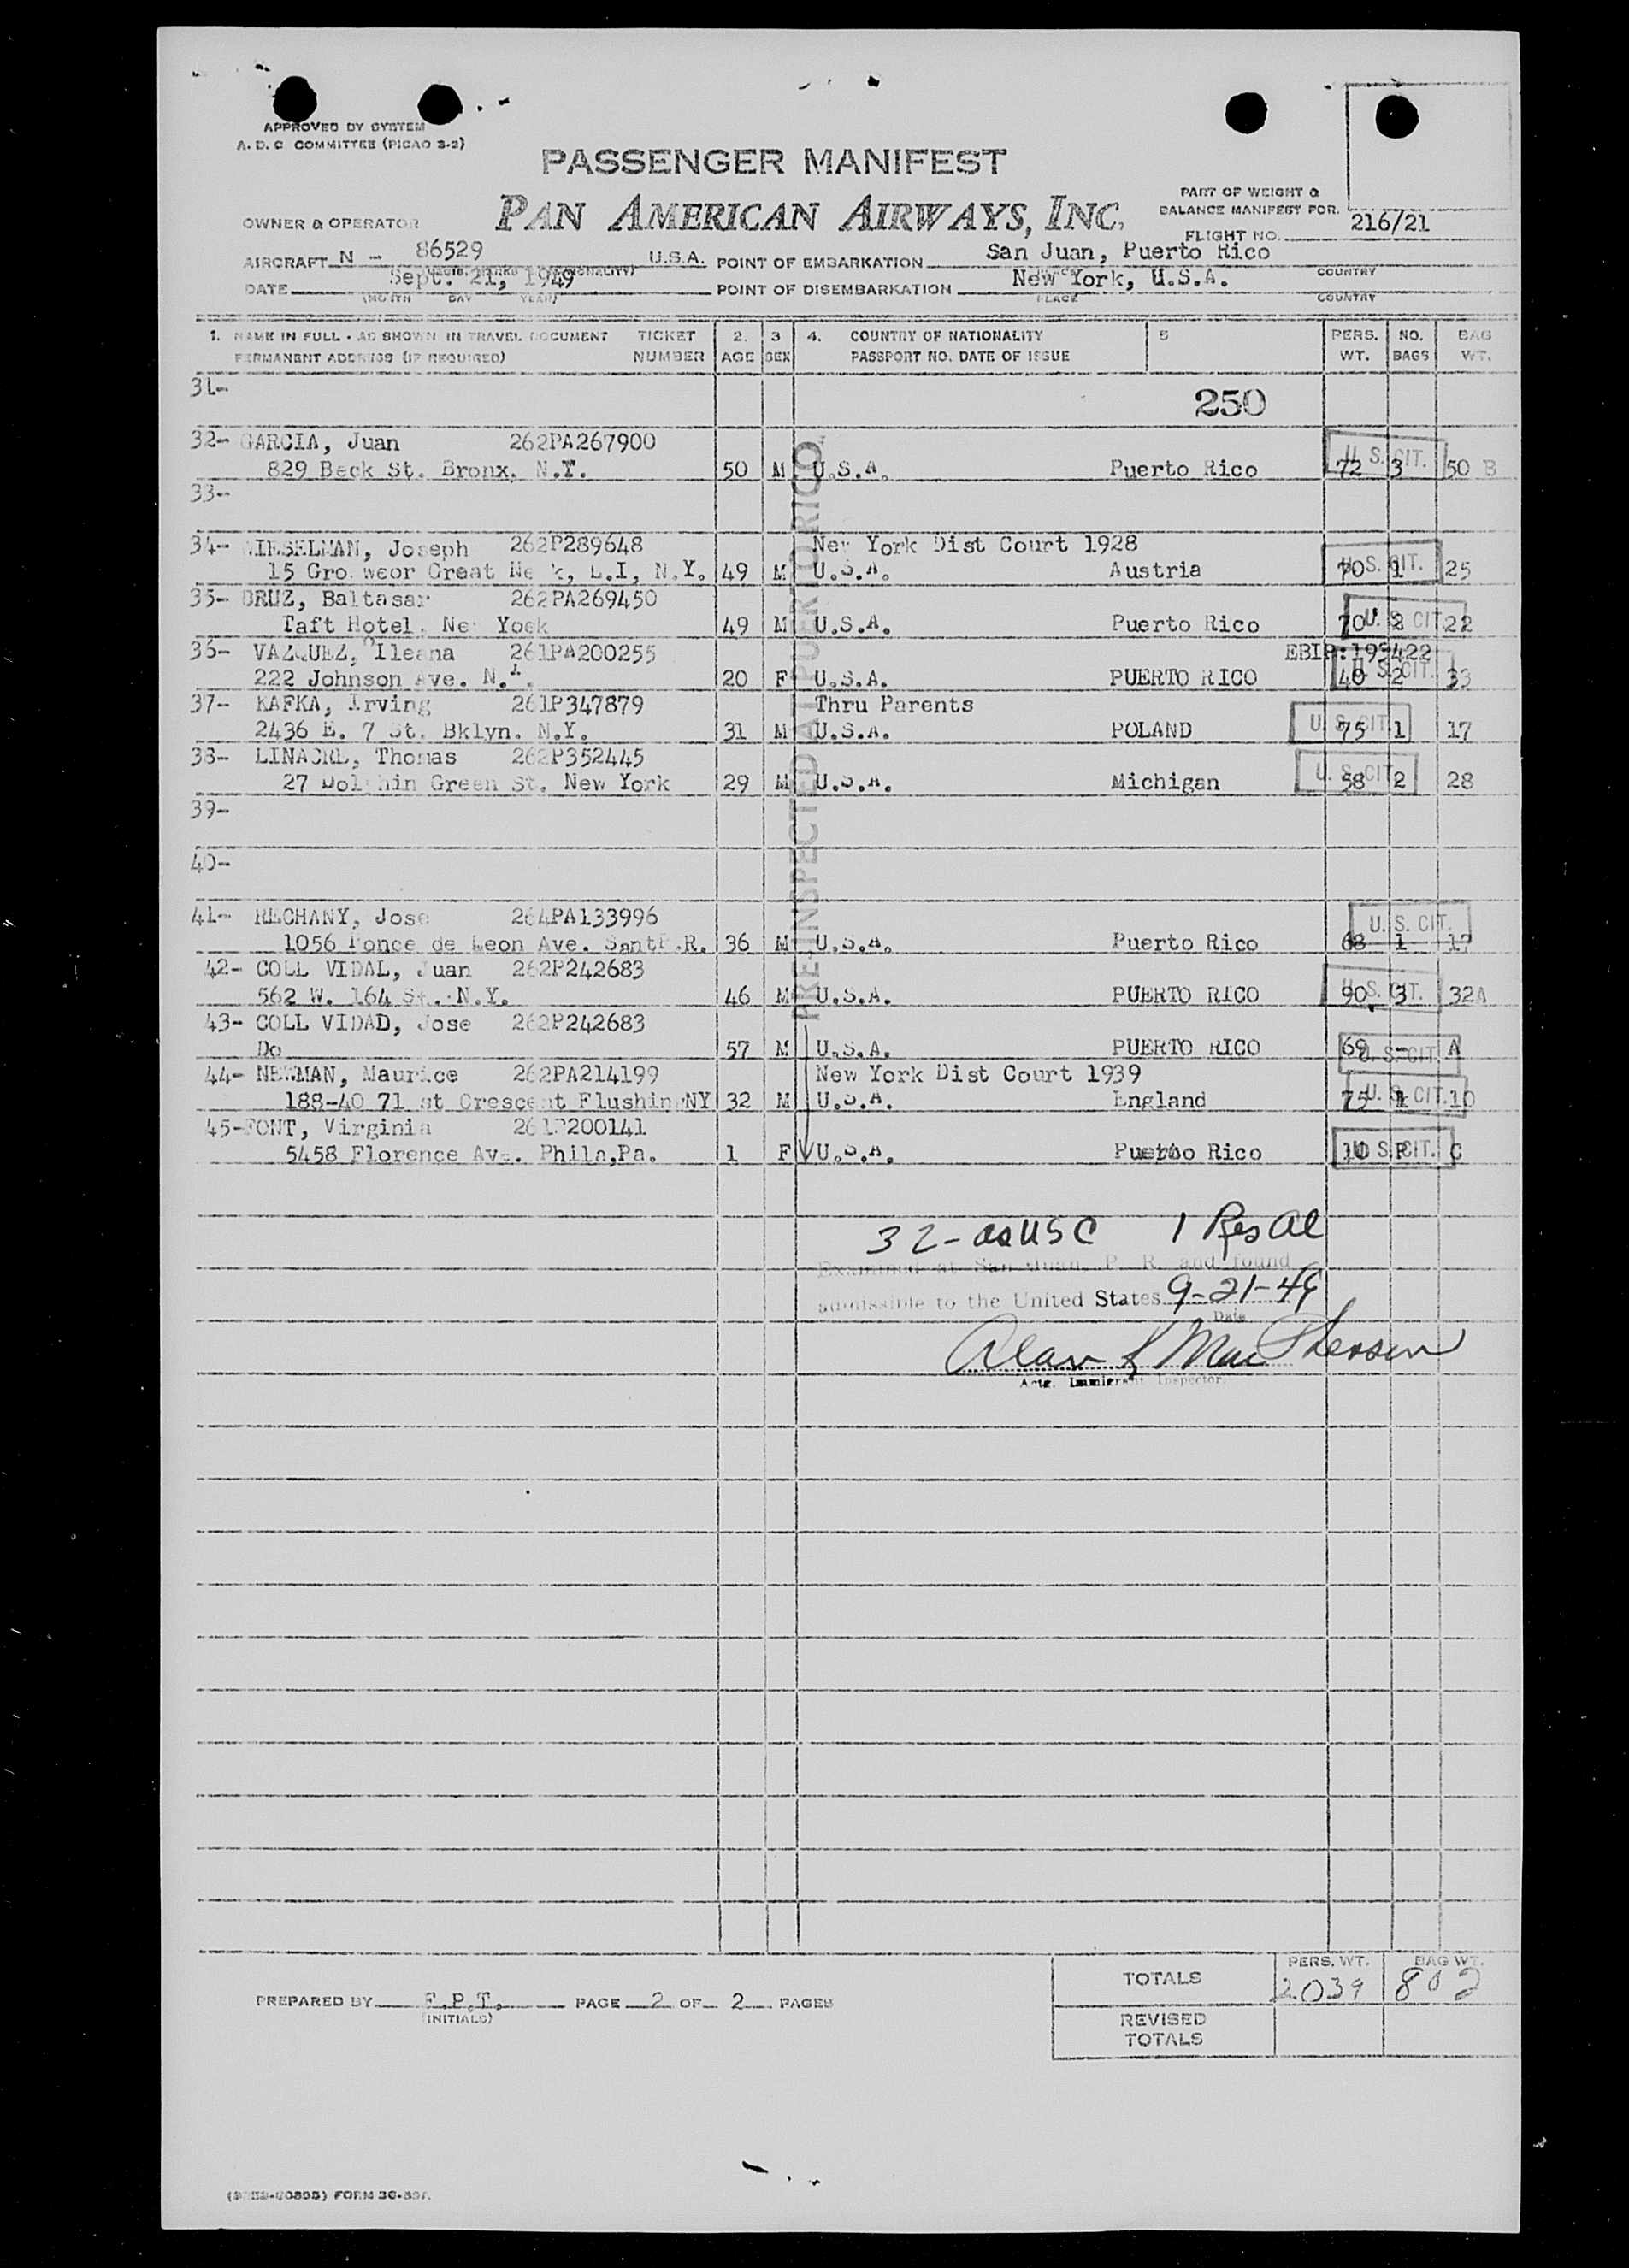 APPROVED BY SYSTEM
A. D. C COMMITTEE (PICAO 3-2)
PASSENGER MANIFEST
PAN AMERICAN AIRWAYS, INC.
OWNER & OPERATOR
PART OF WEIGHT &
BALANCE MANIFEST FOR.
FLIGHT NO. 216/21
AIRCRAFT N - 86529 U.S.A. POINT OF EMBARKATION San Juan, Puerto Rico
DATE Sept. 21, 1949 POINT OF DISEMBARKATION New York, U.S.A.
(MONTH DAY YEAR) PLACE COUNTRY
1. NAME IN FULL - AS SHOWN IN TRAVEL DOCUMENT TICKET 2. 3 4. COUNTRY OF NATIONALITY 5 PERS. NO. BAG
PERMANENT ADDRESS (IF REQUIRED) NUMBER AGE SEX PASSPORT NO. DATE OF ISSUE WT. BAGS WT.
31-
250
32- GARCIA, Juan 262PA267900
829 Beck St. Bronx, N.Y. 50 M U.S.A. Puerto Rico 72 3 50 B
U. S. CIT.
33-
34- Joseph 262P289648 New York Dist Court 1928
15 Great L.I, N.Y. 49 M U.S.A. Austria 70 1 25
U. S. CIT.
35- Baltasar 262PA269450
Taft Hotel. New Yoek 49 M U.S.A. Puerto Rico 70 2 22
U. S. CIT.
36- VAZQUEZ, Ileana 261PA200255
222 Johnson Ave. N.Y. 20 F U.S.A. PUERTO RICO 40 2 33
U. S. CIT.
37- KAFKA, Irving 261P347879 Thru Parents
2436 E. 7 St. Bklyn. N.Y. 31 M U.S.A. POLAND 75 1 17
U. S. CIT.
38- Thomas 262P352445
27 Dolphin Green St. New York 29 M U.S.A. Michigan 58 2 28
U. S. CIT.
39-
40-
41- RECHANY, Jose 264PA133996
1056 Ponce de Leon Ave. 36 M U.S.A. Puerto Rico 68 1
U. S. CIT.
42- COLL VIDAL, Juan 262P242683
562 W. 164 St. N.Y. 46 M U.S.A. PUERTO RICO 90 3 32A
U. S. CIT.
43- COLL VIDAD, Jose 262P242683
Do 57 M U.S.A. PUERTO RICO 69 - A
U. S. CIT.
44- NEWMAN, Maurice 262PA214199 New York Dist Court 1939
188-40 71 st Crescent Flushing NY 32 M U.S.A. England 75 1 10
U. S. CIT.
45-FONT, Virginia 261P200141
5458 Florence Ave. Phila,Pa. 1 F U.S.A. Puerto Rico 10 C
U. S. CIT.
PRE-INSPECTED AT PUERTO RICO
32- as USC 1 Res Al
Examined at San Juan, P. R. and found
admissible to the United States 9-21-49
Date
Alan MacPherson
Actg. Immigrant Inspector.
PERS. WT. BAG WT.
TOTALS 2039 802
PREPARED BY F.P.T. PAGE 2 OF 2 PAGES
(INITIALS)
REVISED
TOTALS